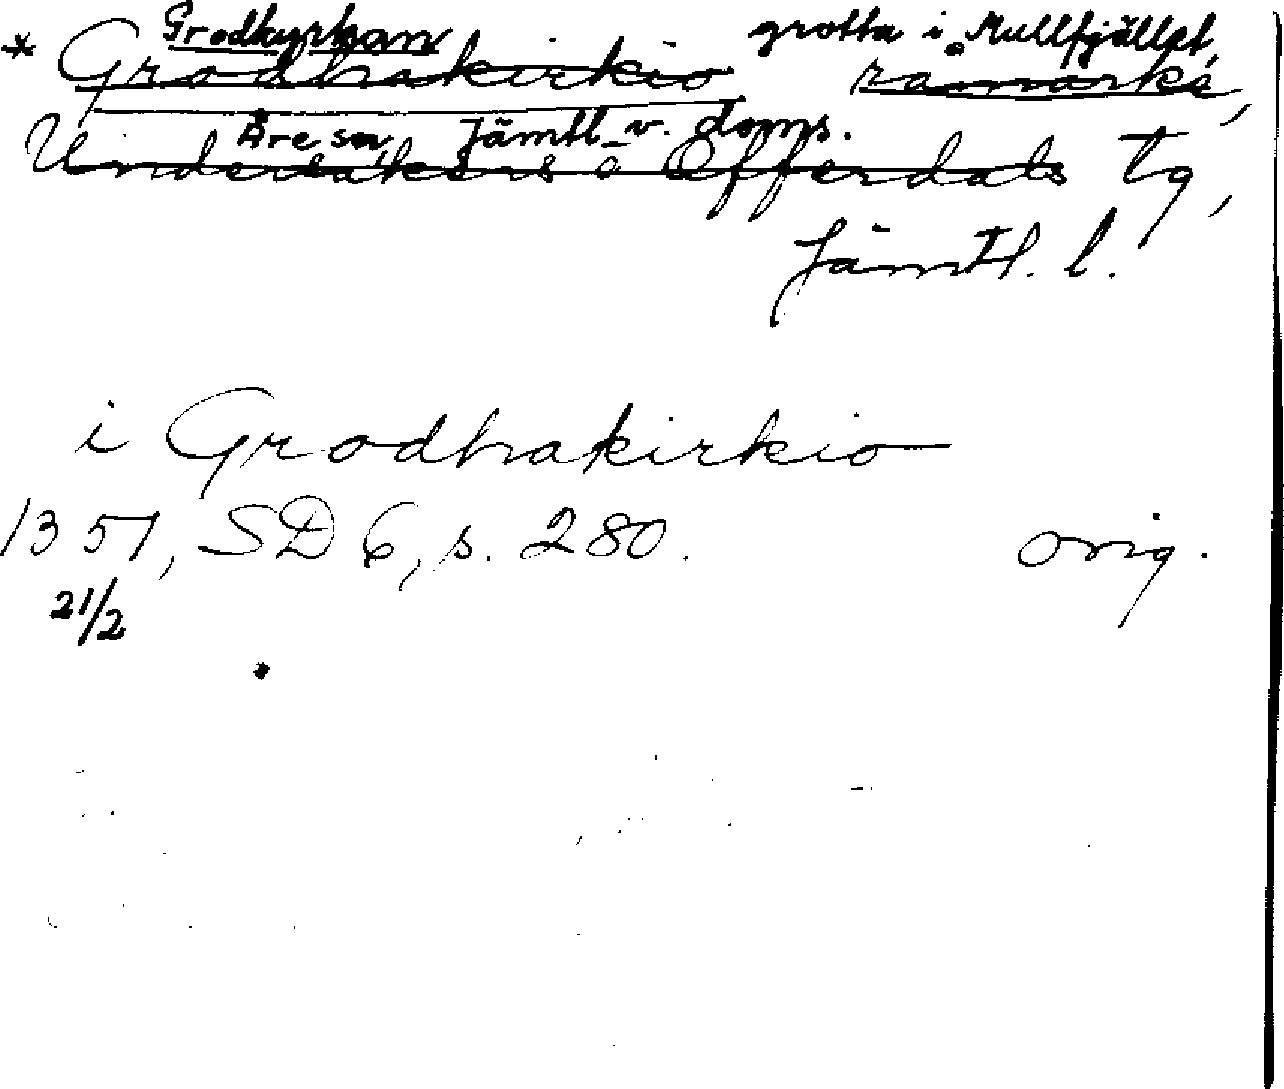 Grodkyrkan grotta i Mullfjället,
* Grodhakirkio råmärke,
Åre sn, Jämtl. v. doms.
Undersåkers o Offerdals tg,
Jämtl. l.
i Grodhakirkio
1357, SD 6, s. 280. orig.
21/2